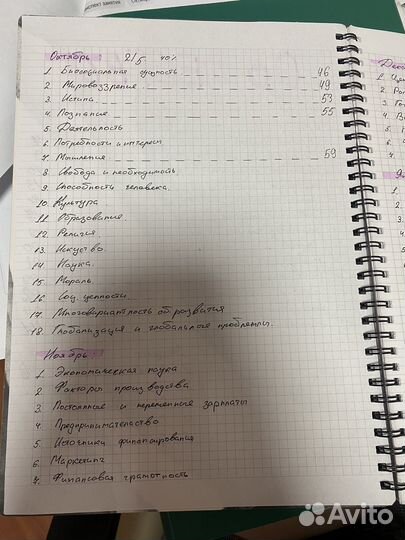 Октябрь 2/5 40%
1. Биосоциальная сущность 46
2. Мировоззрение 49
3. Истина 53
4. Познание 55
5. Деятельность
6. Потребности и интересы
7. Мышление 59
8. Свобода и необходимость
9. Способность человека.
10. Культура
11. Образование
12. Религия.
13. Искуство.
14. Наука.
15. Мораль.
16. Соц. ценности.
17. Многовариантность об. развития
18. Глобализация и глобальные проблемы.
Ноябрь
1. Экономическая наука
2. Факторы производства
3. Постоянные и переменные зарплаты
4. Предпринимательство
5. Источники финансирования
6. Маркетинг
7. Финансовая грамотность
Дека
1.
2.
3.
4.
5.
6.
1.
2.
3.
4.
Avito